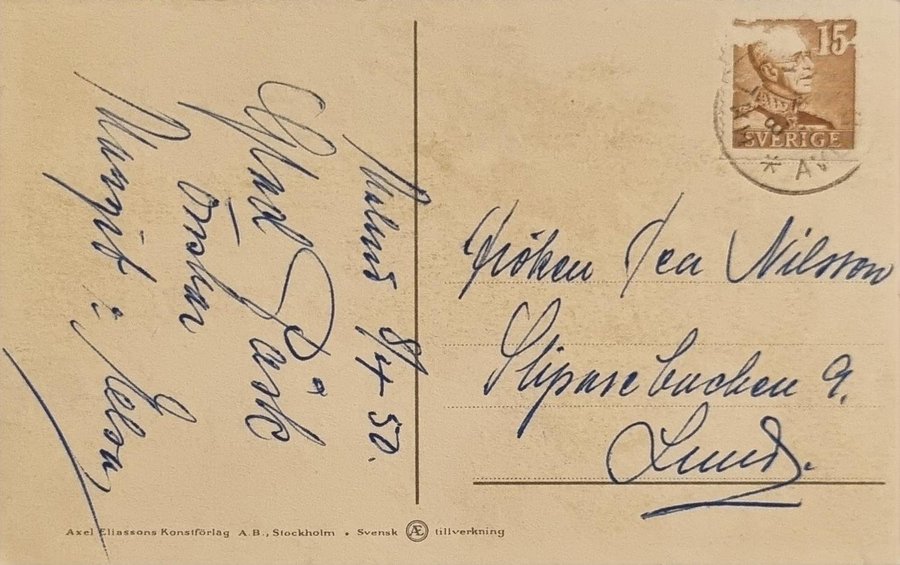 Malmö 8/4 50.
Glad Påsk
önskar
Margit &
15
SVERIGE
Fröken Nilsson
Sliparebacken 9.
Lund.
Axel Eliassons Konstförlag A.B., Stockholm • Svensk Æ tillverkning